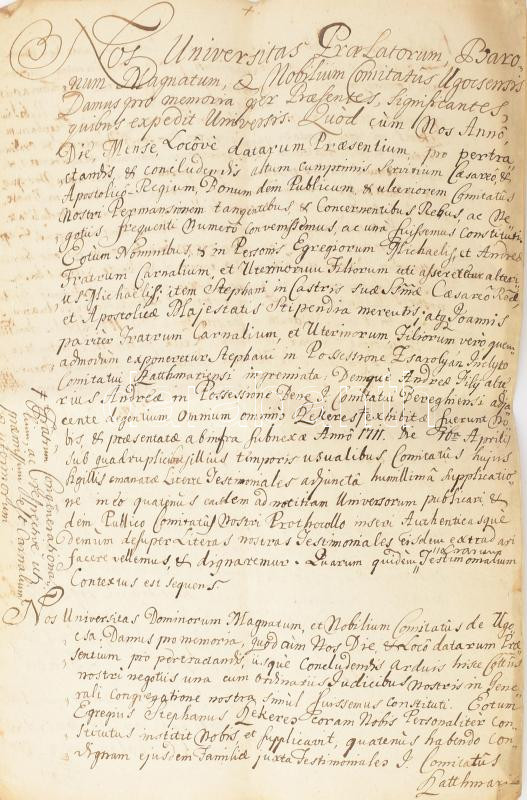 Nos Universitas Prælatorum, Baro-
num Magnatum, & Nobilium Comitatûs Ugocsensis
Damus pro memoria per Præsentes, significantes,
quibus expedit Universis: Quod cùm Nos Annô
Die, Mense, Locôve datarum Præsentium, pro pertra
ctandis, & concludendis altum cumprimis servitium Cæsareo, &
Apostolico-Regium, Bonum dem Publicum, & ulteriorem Comitatûs
Nostri Permansionem tangentibus, & Concernentibus Rebus, ac Ne
gotijs, frequenti Numerô Convenissemus, ac unà fuissemus Constituti;
Eotum Nominibus, & in Personis Egregiorum Michaelis, et Andreæ
Fratrum Carnalium, et Uterinorum Filiorum uti assereretur alteri
us Michaelis; item Stephani in Castris suæ Sacræ Cæsareo Regiæ
et Apostolicæ Majestatis Stipendia merentis, atq Joannis
pariter Fratrum Carnalium, et Uterinorum, Filiorum verò quem
admodum exponeretur Stephani in Possessione Csarolyan Inclyto
Comitatui Zatthmariensi ingremiata, Demque Andreæ Filij alte
rius Andreæ in Possessione Bene I. Comitatui Bereghiensi adja
cente degentium Omnium omninò Kekeres exhibitæ fuerunt No
bis, & præsentatæ ab infra subnexæ Annô 1711. Die Aprilis
sub quadruplici sigillis illius temporis usualibus, Comitatûs hujus
Sigillis emanatæ Literæ Testimoniales adjunctâ humillimâ supplicatio
ne in eo quatenus easdem ad notitiam Universorum publicari, &
dem Publico Comitatûs Nostri Prothocollo inseri Authenticasque
demum desuper Literas nostras Testimoniales eisdem extradari
facere vellemus, & dignaremur. Quarum quidem Literarum Testimonialium
Contextus est sequens.
Nos Universitas Dominorum Magnatum, et Nobilium Comitatûs de Ugo
csa. Damus pro memoria, quod cùm Nos Die, & Locô datarum Præ
sentium pro pertractandis, usque concludendis arduis hisce Comitatûs
nostri negotijs una cum Ordinarijs Judicibus Nostris in Gene
rali Congregatione nostra simul fuissemus Constituti. Eotum
Egregius Stephanus Kekeres coram Nobis Personaliter Con
stitutus institit Nobis, et supplicavit, quatenus habendo Con
dignam ejusdem Familiæ juxta Testimoniales I. Comitatûs
Zatthmari-